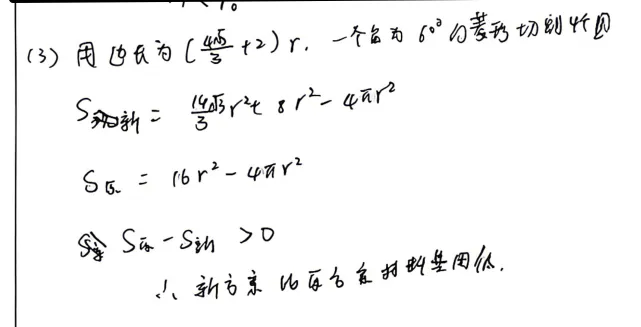 (3) 用边长为 (4√3/3 + 2) r. 一个角为 60° 的菱形切割4个圆
S新 = 14√3/3 r² + 8r² - 4πr²
S原 = 16r² - 4πr²
S原 - S新 > 0
∴ 新方案比原方案材料费用低.